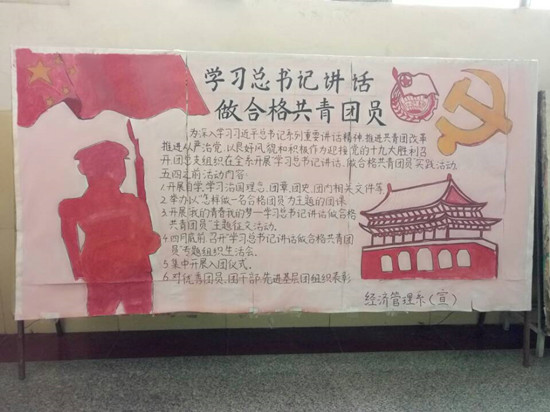 学习总书记讲话
做合格共青团员
为深入学习习近平总书记系列重要讲话精神,推进共青团改革
推进从严治党,以良好风貌和积极作为迎接党的十九大胜利召
开,团总支组织在全系开展"学习总书记讲话,做合格共青团员"实践活动.
五四之前活动内容:
1.开展自学,学习治国理念,团章,团史,团内相关文件等
2.举办以"怎样做一名合格团员"为主题的团课
3.开展"我的青春我的梦—学习总书记讲话做合格
共青团员"主题征文活动.
4.四月底前召开"学习总书记讲话做合格共青团
员"专题组织生活会.
5.集中开展入团仪式.
6.对优秀团员,团干部,先进基层团组织表彰
经济管理系(宣)